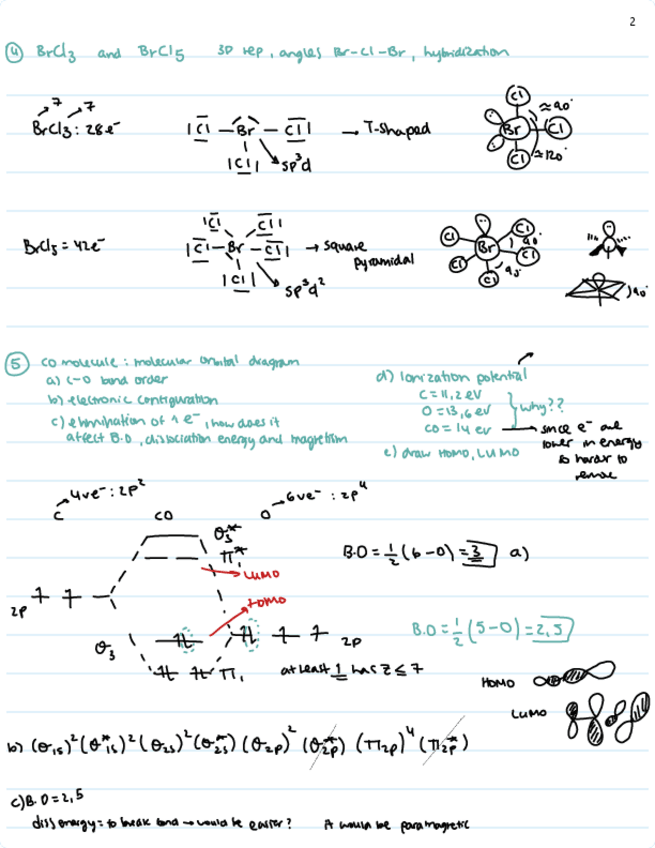 2
④ BrCl₃ and BrCl₅ 3D rep, angles Br-Cl-Br, hybridization
7 7
BrCl₃: 28e⁻
|Cl — Br — Cl|
|Cl|
sp³d
→ T-shaped
Cl
Br
Cl
Cl
≈90°
≈120°
BrCl₅ = 42e⁻
|Cl Cl|
|Cl — Br — Cl|
|Cl|
sp³d²
→ square
pyramidal
Cl
Cl
Br
Cl
Cl
Cl
90°
90°
)90°
⑤ CO molecule: molecular orbital diagram
a) C-O bond order
b) electronic configuration
c) elimination of 1 e⁻, how does it
affect B.O, dissociation energy and magnetism
d) Ionization potential
C = 11,2 eV
O = 13,6 eV
CO = 14 eV
why??
→ since e⁻ are
lower in energy
so harder to
remove
e) draw HOMO, LUMO
4ve⁻: 2p²
C
CO
6ve⁻: 2p⁴
O
σ₃*
π*₁
LUMO
HOMO
2p
2p
σ₃
π₁
at least 1 has Z ≤ 7
B.O = ½ (6-0) = 3 a)
B.O = ½ (5-0) = 2,5
HOMO
LUMO
b) (σ₁ₛ)² (σ*₁ₛ)² (σ₂ₛ)² (σ₂ₛ*) (σ₂p)² (σ₂p*) (π₂p)⁴ (π₂p*)
c) B.O = 2,5
diss energy = to break bond → would be easier? It would be paramagnetic